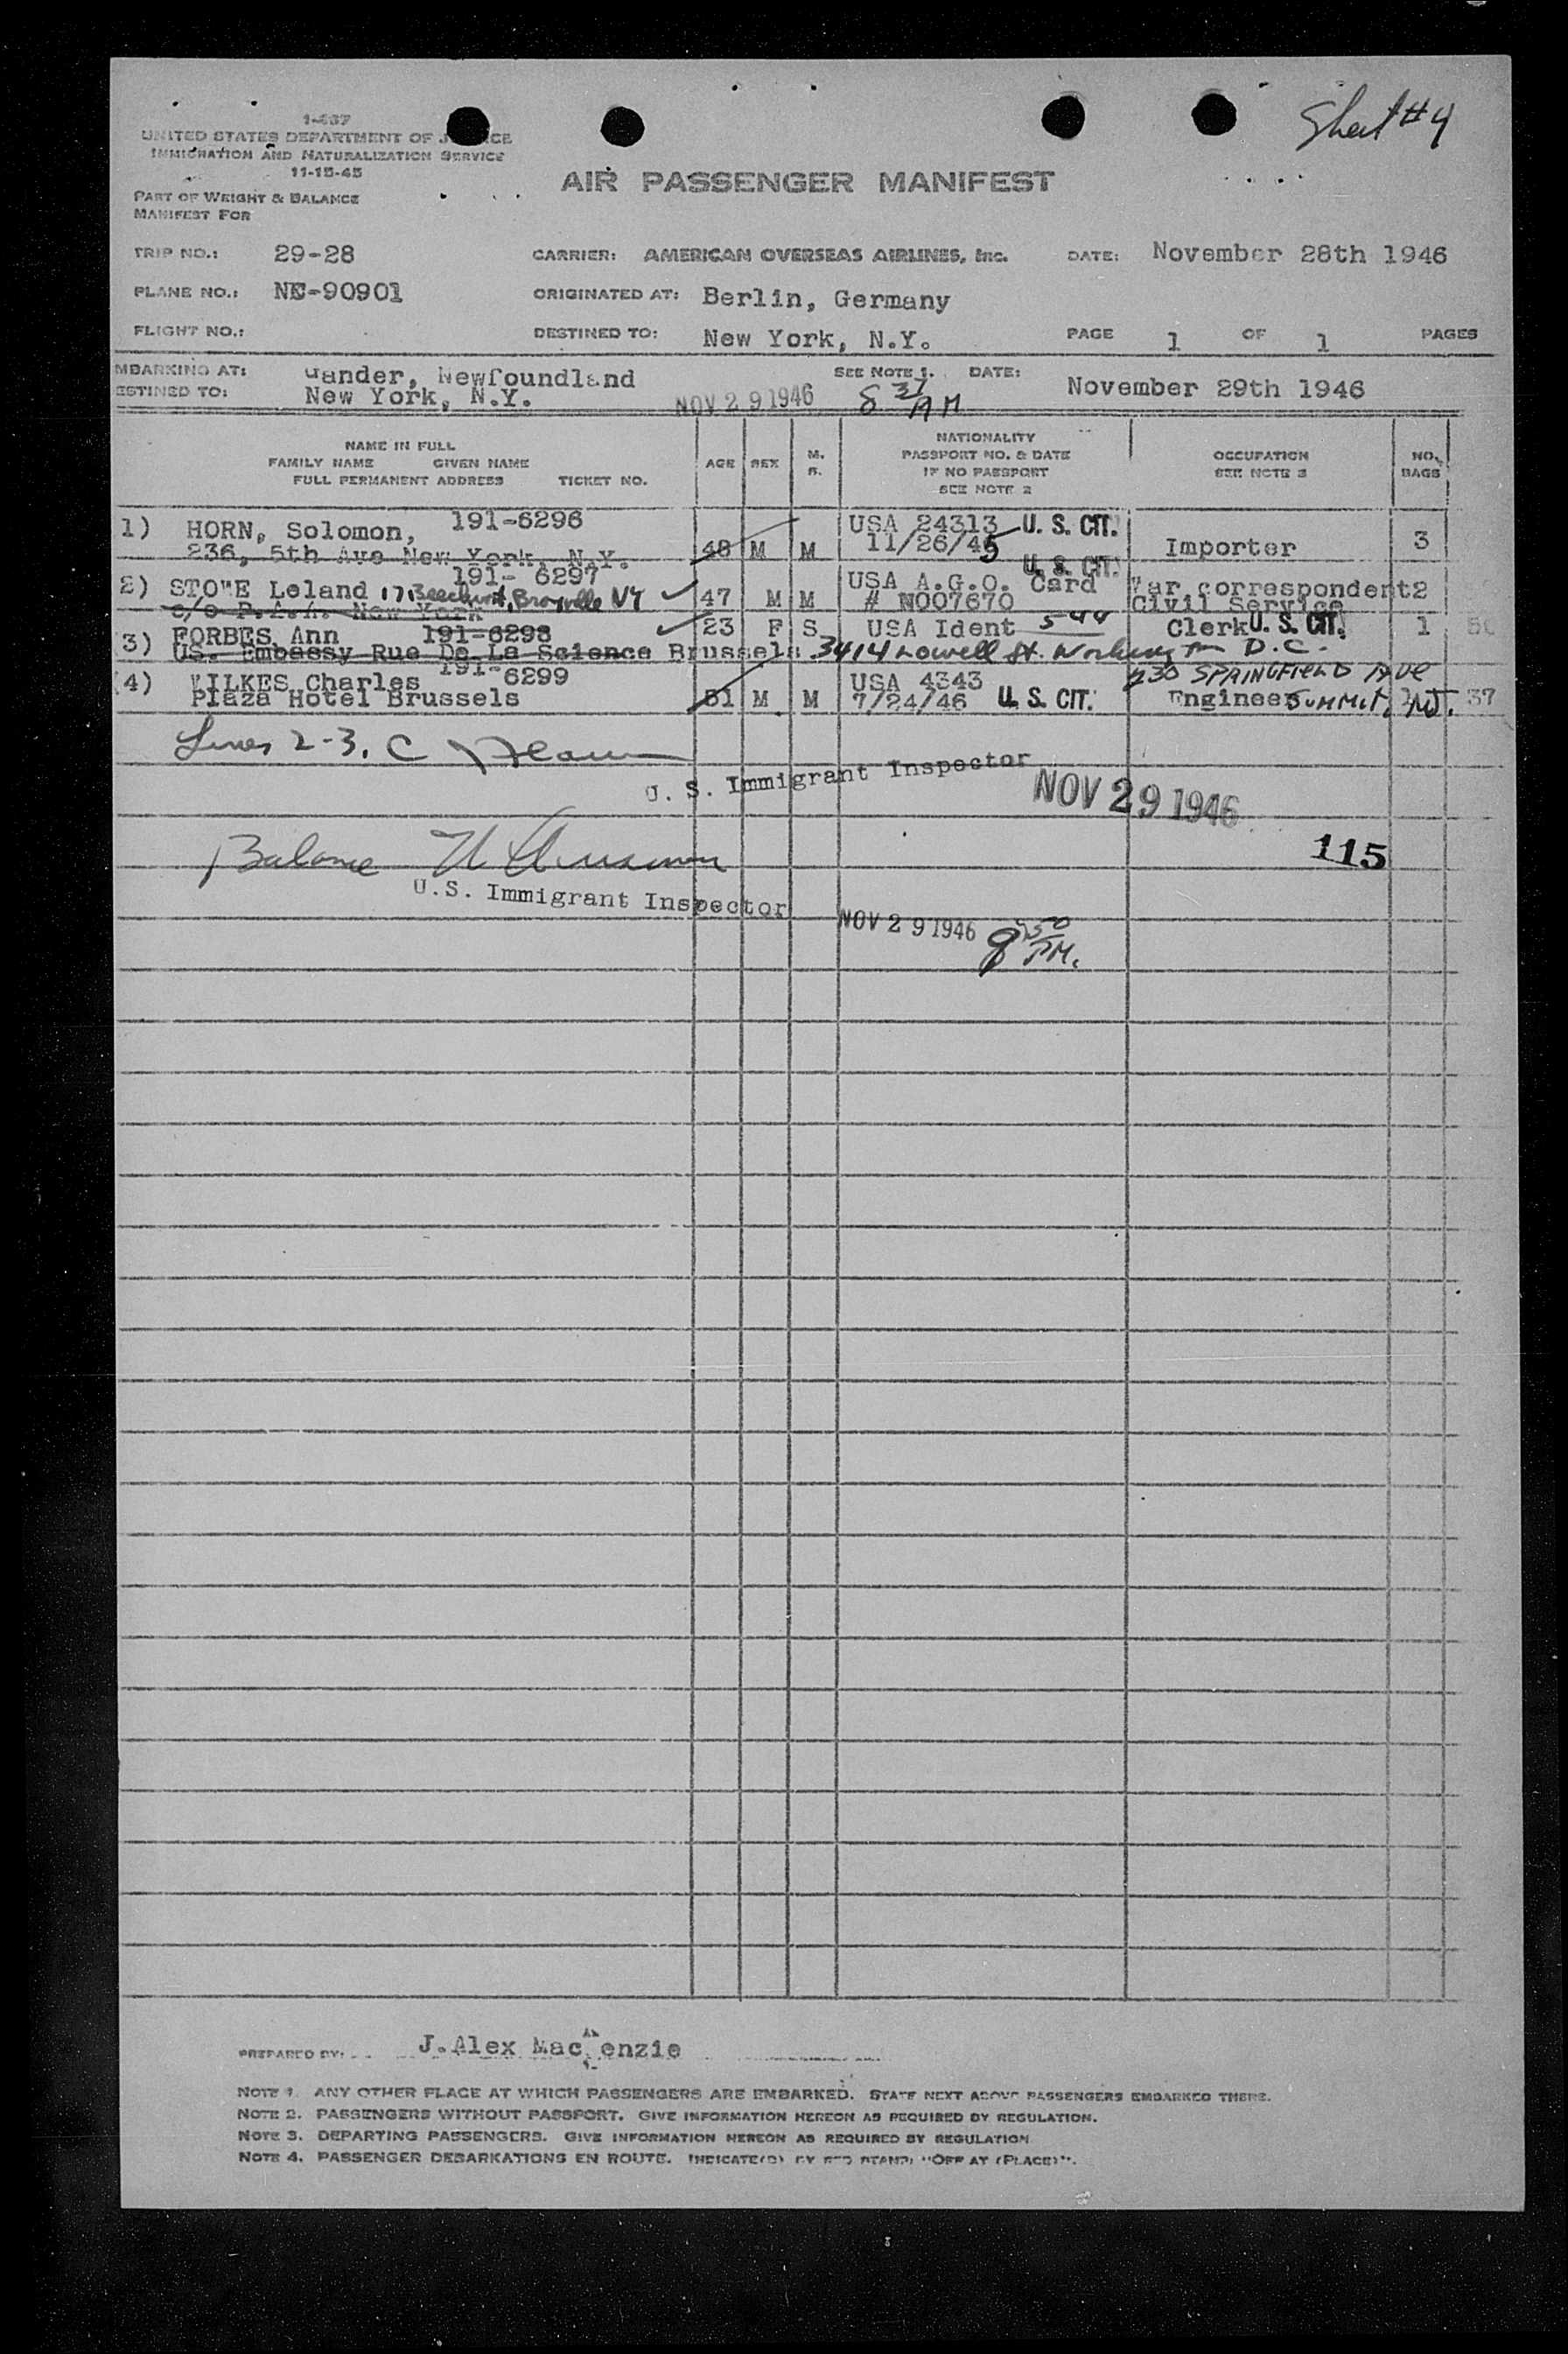 Sheet #4
1-437
UNITED STATES DEPARTMENT OF J CE
IMMIGRATION AND NATURALIZATION SERVICE
11-15-45
AIR PASSENGER MANIFEST
PART OF WEIGHT & BALANCE
MANIFEST FOR
TRIP NO.: 29-28 CARRIER: AMERICAN OVERSEAS AIRLINES, Inc. DATE: November 28th 1946
PLANE NO.: NC-90901 ORIGINATED AT: Berlin, Germany
FLIGHT NO.: DESTINED TO: New York, N.Y. PAGE 1 OF 1 PAGES
MBARKING AT: Gander, Newfoundland SEE NOTE 1. DATE: November 29th 1946
ESTINED TO: New York, N.Y. NOV 29 1946 8 37 AM
NAME IN FULL
FAMILY NAME GIVEN NAME
FULL PERMANENT ADDRESS TICKET NO.
AGE SEX M. S.
NATIONALITY
PASSPORT NO. & DATE
IF NO PASSPORT
SEE NOTE 2
OCCUPATION
SEE NOTE 3
NO. BAGS
1) HORN, Solomon, 191-6296 48 M M USA 24313 U. S. CIT. Importer 3
236, 5th Ave New York, N.Y. 11/26/45
2) STOWE Leland 191- 6297 17 Beechwood, Bronxville NY 47 M M USA A.G.O. Card U. S. CIT. War correspondent 2
c/o P.A.A. New York # N007670 Civil Service
3) FORBES Ann 191-6298 23 F S USA Ident 5-44 Clerk U. S. CIT. 1
US. Embassy Rue De La Science Brussels 3414 Lowell St. D.C.
4) WILKES Charles 191-6299 51 M M USA 4343 SPRINGFIELD AVE
Plaza Hotel Brussels 7/24/46 U. S. CIT. Engineer SUMMIT, NJ. 37
Lines 2-3. C
U. S. Immigrant Inspector NOV 29 1946
Balance
115
U.S. Immigrant Inspector
NOV 29 1946 8 50 PM.
PREPARED BY: J.Alex MacKenzie
NOTE 1. ANY OTHER PLACE AT WHICH PASSENGERS ARE EMBARKED. STATE NEXT ABOVE PASSENGERS EMBARKED THERE.
NOTE 2. PASSENGERS WITHOUT PASSPORT. GIVE INFORMATION HEREON AS REQUIRED BY REGULATION.
NOTE 3. DEPARTING PASSENGERS. GIVE INFORMATION HEREON AS REQUIRED BY REGULATION
NOTE 4. PASSENGER DEBARKATIONS EN ROUTE. INDICATE(D) BY RED STAMP: "OFF AT (PLACE)".